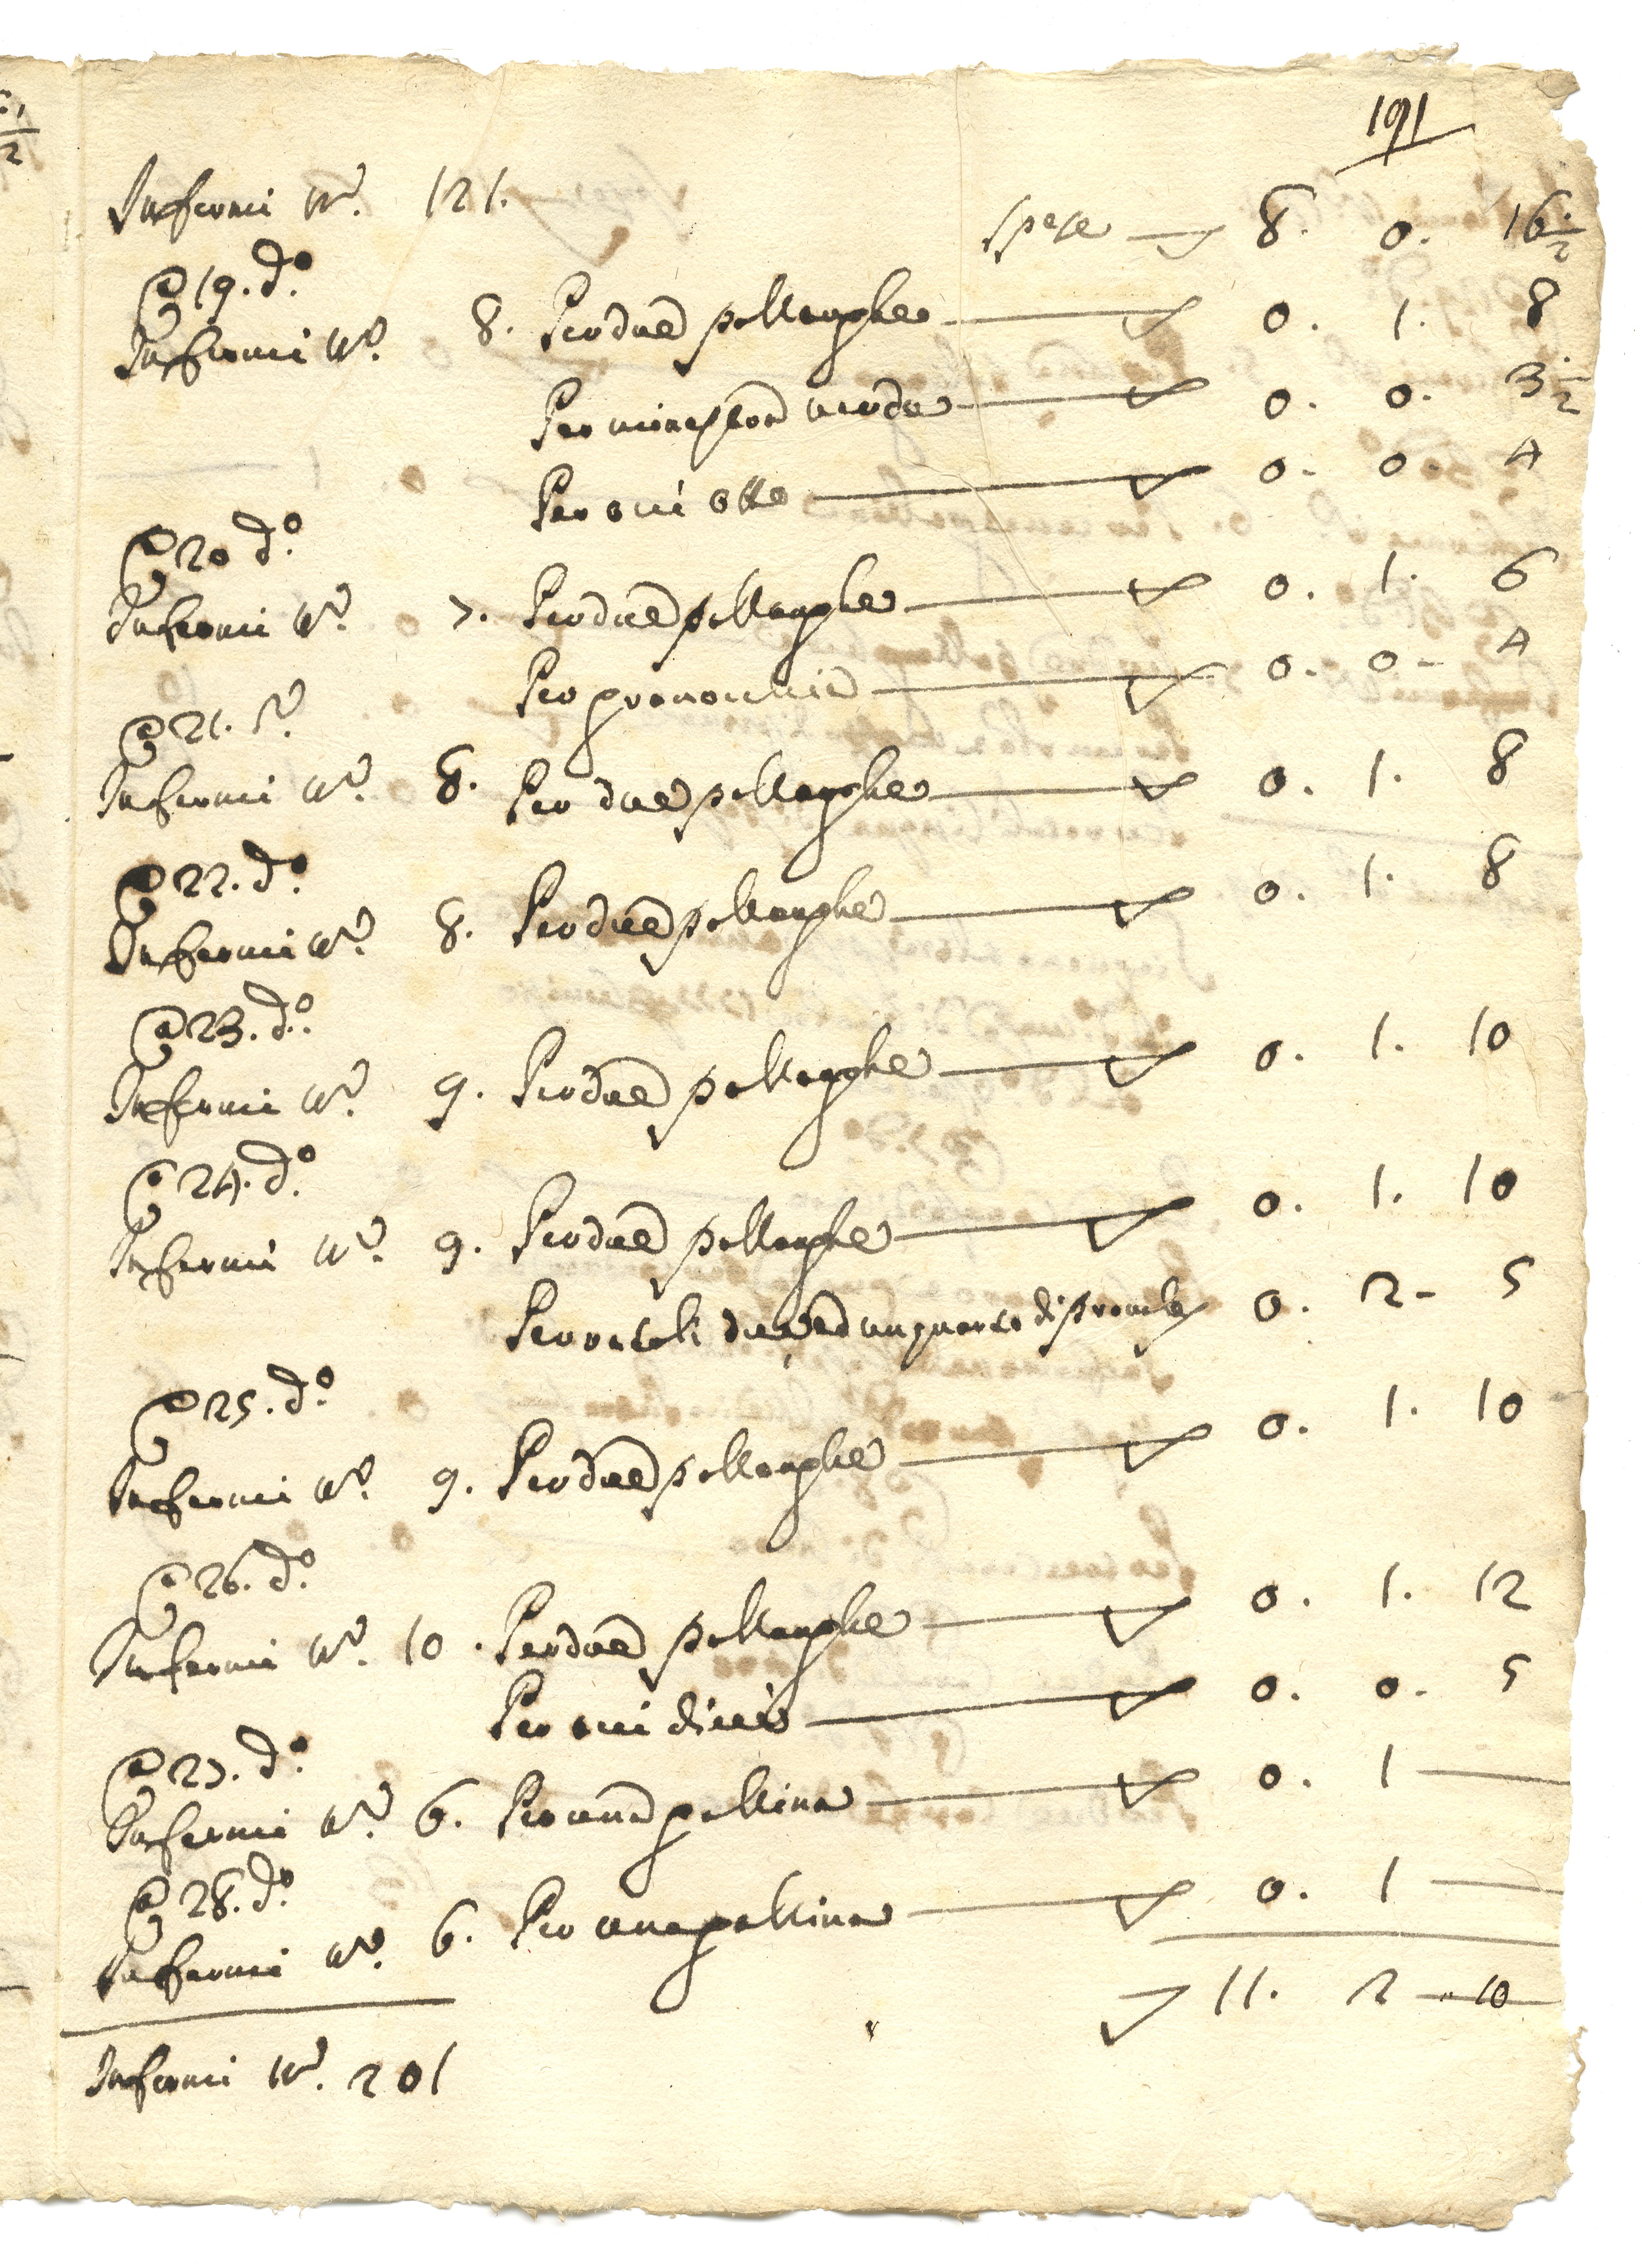 191
Infermi nº. 121. spese 8. 0. 16 1/2
A 19. dº.
Infermi nº. 8. Per due pollanghe 0. 1. 8
Per minestra verde 0. 0. 3 1/2
Per ovi otto 0. 0. 4
A 20 dº.
Infermi nº. 7. Per due pollanghe 0. 1. 6
Per 0. 0. 4
A 21. dº.
Infermi nº. 8. Per due pollanghe 0. 1. 8
A 22. dº.
Infermi nº. 8. Per due pollanghe 0. 1. 8
A 23. dº.
Infermi nº. 9. Per due pollanghe 0. 1. 10
A 24. dº.
Infermi nº. 9. Per due pollanghe 0. 1. 10
Per rotoli due ed un quarto di 0. 2 5
A 25. dº.
Infermi nº. 9. Per due pollanghe 0. 1. 10
A 26. dº.
Infermi nº. 10. Per due pollanghe 0. 1. 12
Per ovi dieci 0. 0. 5
A 27. dº.
Infermi nº. 6. Per una gallina 0. 1
A 28. dº.
Infermi nº. 6. Per una gallina 0. 1
11. 2 10
Infermi nº. 201